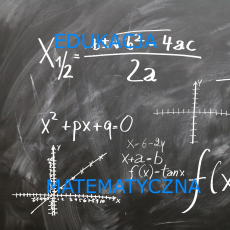 EDUKACJA
X₁/₂ = b± √b²- 4ac
2a
x² +px+q=0
x+a-b
f(x)-tanx
f(x
MATEMATYCZNA